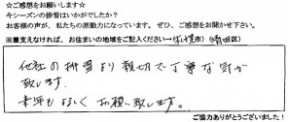 ☆ご感想をお願いします☆
今シーズンの排雪はいかがでしたか？
お客様の声が、私たちの原動力になっています。ぜひ、ご感想をお聞かせ下さい。
※差支えなければ、お住まいの地域をご記入ください→(札幌市)(区)
他社の排雪より親切で丁寧な気が
致します。
来年もよろしくお願い致します。
ご協力ありがとうございました！